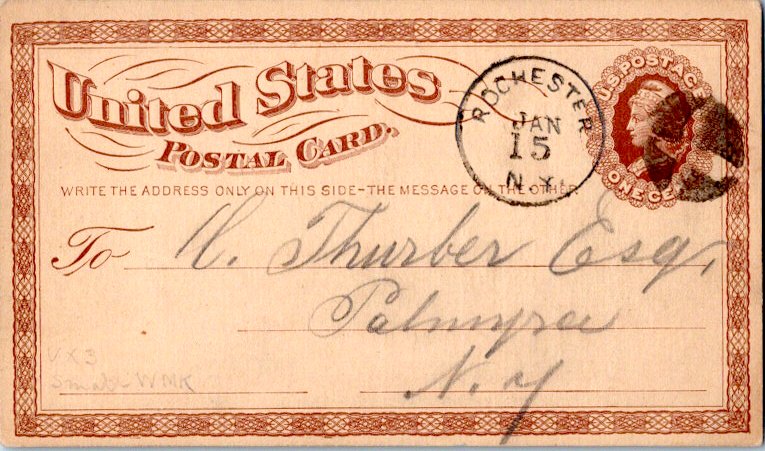 United States
POSTAL CARD.
WRITE THE ADDRESS ONLY ON THIS SIDE-THE MESSAGE ON THE OTHER
ROCHESTER
JAN
15
N.Y.
U.S. POSTAGE
ONE CENT
To
Thurber Esq.
Palmyra
N. Y
UX3
Small WMK